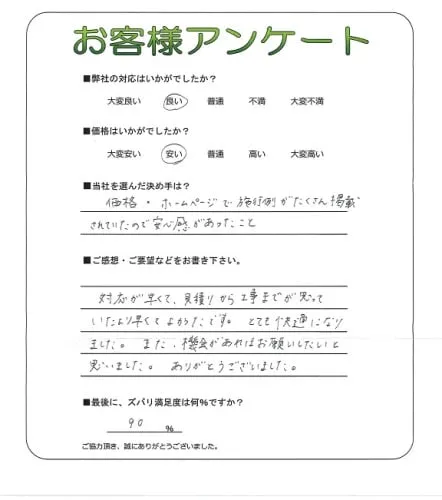 お客様アンケート
■弊社の対応はいかがでしたか?
大変良い 良い 普通 不満 大変不満
■価格はいかがでしたか?
大変安い 安い 普通 高い 大変高い
■当社を選んだ決め手は?
価格・ホームページで施行例がたくさん掲載
されていたので安心感があったこと
■ご感想・ご要望などをお書き下さい。
対応が早くて、見積りから工事までが思って
いたより早くてよかったです。とても快適になり
ました。また、機会があればお願いしたいと
思いました。ありがとうございました。
■最後に、ズバリ満足度は何%ですか?
90 %
ご協力頂き、誠にありがとうございました。